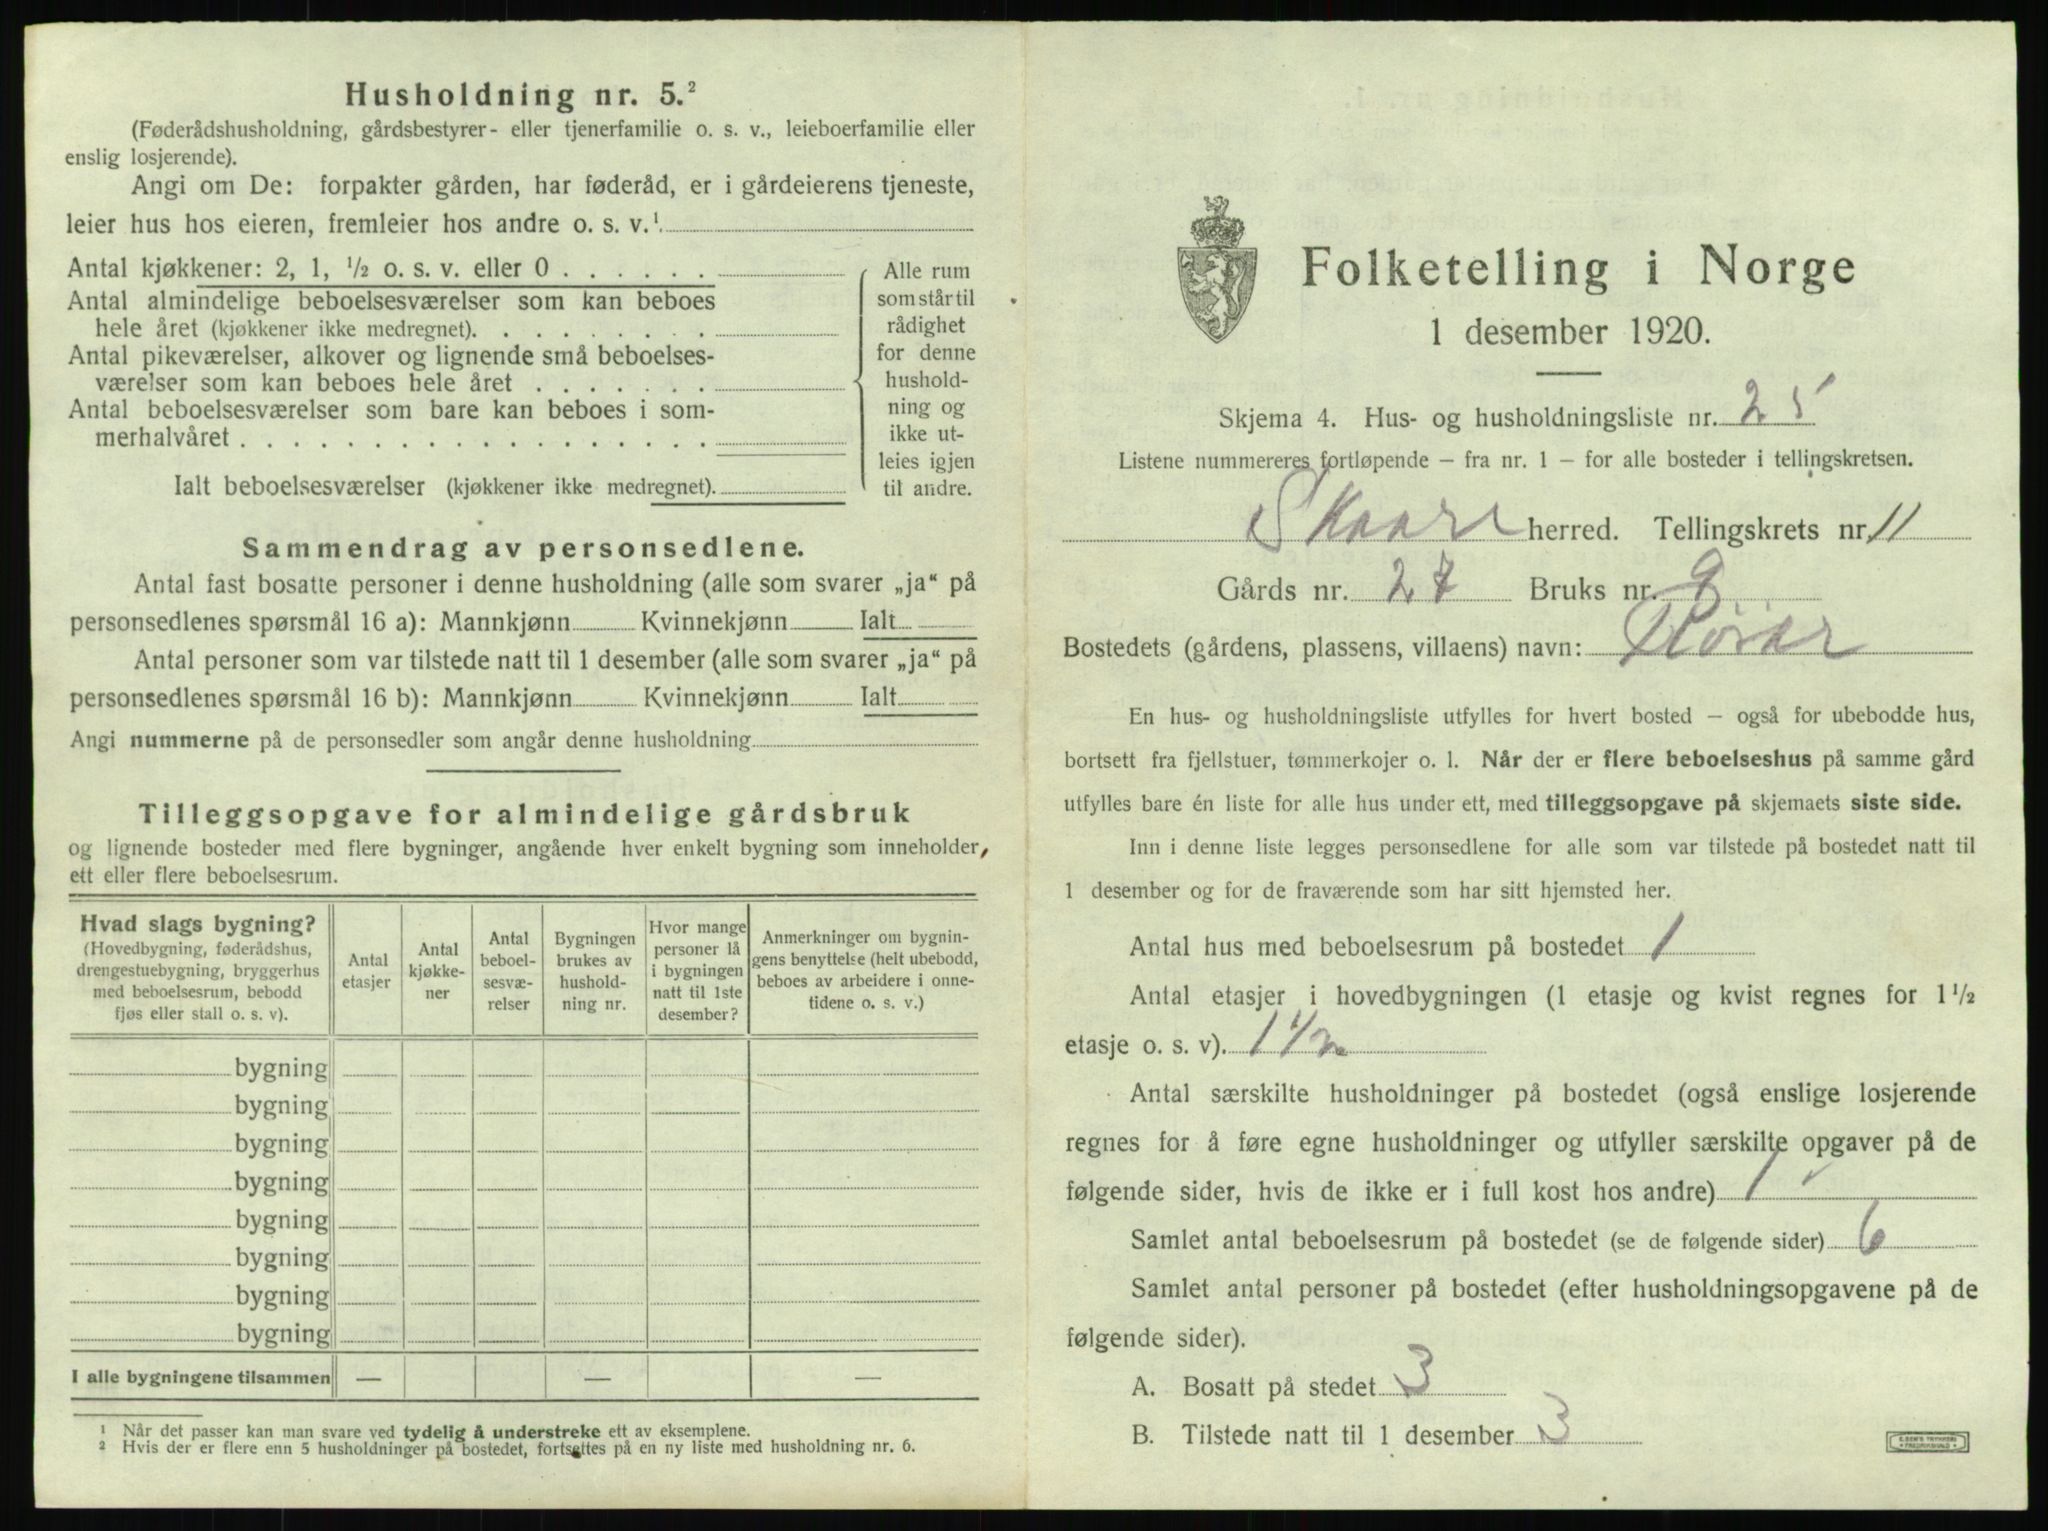 Husholdning nr. 5.²
(Føderådshusholdning, gårdsbestyrer- eller tjenerfamilie o. s. v., leieboerfamilie eller
enslig losjerende).
Angi om De: forpakter gården, har føderåd, er i gårdeierens tjeneste,
leier hus hos eieren, fremleier hos andre o. s. v.¹
Antal kjøkkener: 2, 1, ½ o. s. v. eller 0 . . . . . .
Antal almindelige beboelsesværelser som kan beboes
hele året (kjøkkener ikke medregnet). . . . . . . . .
Antal pikeværelser, alkover og lignende små beboelses-
værelser som kan beboes hele året . . . . . . .
Antal beboelsesværelser som bare kan beboes i som-
merhalvåret . . . . . . . . . . . . . . . . . .
Ialt beboelsesværelser (kjøkkener ikke medregnet).
Alle rum
som står til
rådighet
for denne
hushold-
ning og
ikke ut-
leies igjen
til andre.
Sammendrag av personsedlene.
Antal fast bosatte personer i denne husholdning (alle som svarer „ja“ på
personsedlenes spørsmål 16 a): Mannkjønn Kvinnekjønn Ialt
Antal personer som var tilstede natt til 1 desember (alle som svarer „ja“ på
personsedlenes spørsmål 16 b): Mannkjønn Kvinnekjønn Ialt
Angi nummerne på de personsedler som angår denne husholdning
Tilleggsopgave for almindelige gårdsbruk
og lignende bosteder med flere bygninger, angående hver enkelt bygning som inneholder
ett eller flere beboelsesrum.
Hvad slags bygning?
(Hovedbygning, føderådshus,
drengestuebygning, bryggerhus
med beboelsesrum, bebodd
fjøs eller stall o. s. v).
Antal
etasjer
Antal
kjøkke-
ner
Antal
beboel-
sesvæ-
relser
Bygningen
brukes av
hushold-
ning nr.
Hvor mange
personer lå
i bygningen
natt til 1ste
desember?
Anmerkninger om bygnin-
gens benyttelse (helt ubebodd,
beboes av arbeidere i onne-
tidene o. s. v.)
bygning
bygning
bygning
bygning
bygning
bygning
bygning
bygning
I alle bygningene tilsammen — — —
¹ Når det passer kan man svare ved tydelig å understreke ett av eksemplene.
² Hvis der er flere enn 5 husholdninger på bostedet, fortsettes på en ny liste med husholdning nr. 6.
Folketelling i Norge
1 desember 1920.
Skjema 4. Hus- og husholdningsliste nr. 25
Listene nummereres fortløpende – fra nr. 1 – for alle bosteder i tellingskretsen.
Skaare herred. Tellingskrets nr. 11
Gårds nr. 27 Bruks nr. 9
Bostedets (gårdens, plassens, villaens) navn:
En hus- og husholdningsliste utfylles for hvert bosted – også for ubebodde hus,
bortsett fra fjellstuer, tømmerkojer o. l. Når der er flere beboelseshus på samme gård
utfylles bare én liste for alle hus under ett, med tilleggsopgave på skjemaets siste side.
Inn i denne liste legges personsedlene for alle som var tilstede på bostedet natt til
1 desember og for de fraværende som har sitt hjemsted her.
Antal hus med beboelsesrum på bostedet 1
Antal etasjer i hovedbygningen (1 etasje og kvist regnes for 1½
etasje o. s. v). 1 1/2
Antal særskilte husholdninger på bostedet (også enslige losjerende
regnes for å føre egne husholdninger og utfyller særskilte opgaver på de
følgende sider, hvis de ikke er i full kost hos andre) 1
Samlet antal beboelsesrum på bostedet (se de følgende sider) 6
Samlet antal personer på bostedet (efter husholdningsopgavene på de
følgende sider).
A. Bosatt på stedet 3
B. Tilstede natt til 1 desember 3